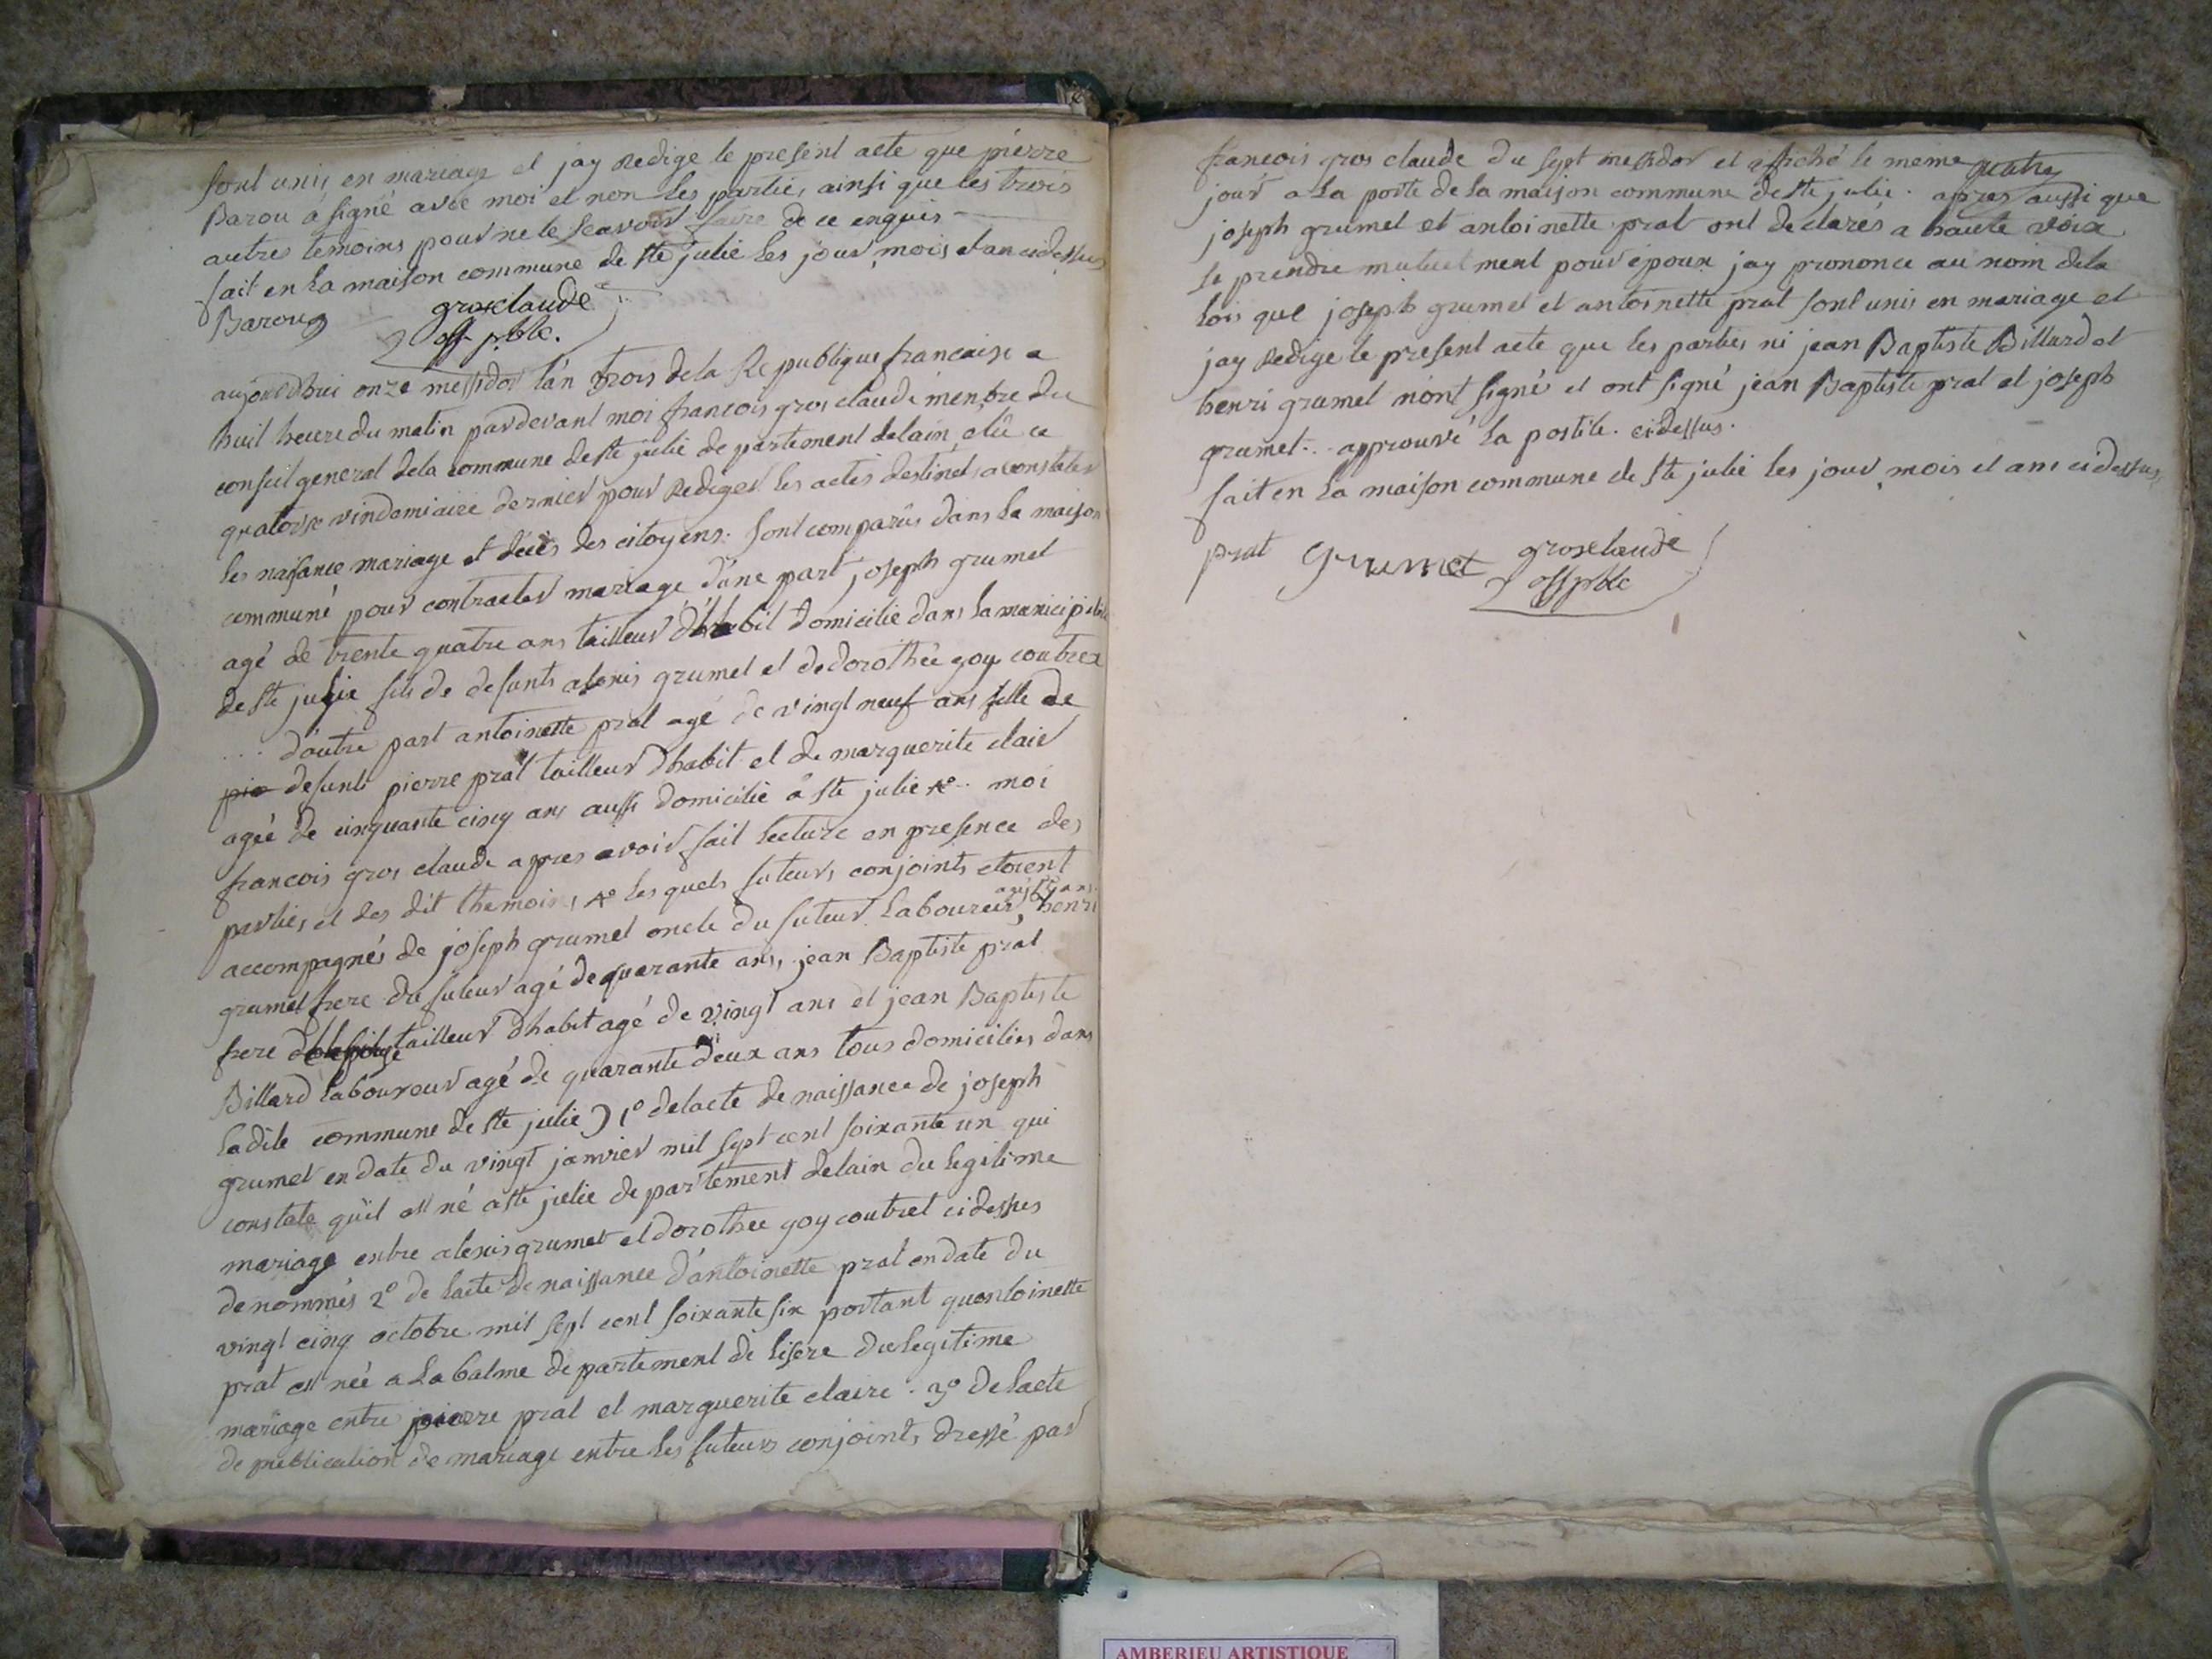 sont unis en mariage et jay Redige le present acte que pierre
Barou á signé avec moi et non les parties ainsi que les trois
autres temoins pour ne le scavoir faire de ce enquis
fait en la maison commune de ste julie les jour mois et an cidessus
Barou
grosclaude
off pble.
aujourdhui onze messidor l'an trois de la Republique francaise a
huit heure du matin pardevant moi francois gros claude menbre du
conseil general dela commune de ste julie departement delain elû ce
quatorse vindemiaire dernier pour Rediger les actes destinés a constater
les naisance mariage et décès des citoyens. sont comparûs dans la maison
communé pour contracter mariage d'une part joseph grumet
agé de trente quatre ans tailleur d'habit domicilie dans la
de ste julie fils de defunts alexis grumet et de dorothée goy coutret
d'autre part antoinette prat agé de vingt neuf ans fille de
pie defunt pierre prat tailleur dhabit et de marguerite clair
ageé de cinquante cinq ans aussi domicilié a ste julie moi
francois gros claude apres avoir fait lecture en presence des
parties et des dit themoins les quels futeurs conjoints etoient
accompagnés de joseph grumet oncle du futeur laboureur, henri
grumet frere du futeur agé de quarante ans, jean Baptiste prat
frere tailleur dhabit agé de vingt ans et jean Baptiste
Billard laboureur agé de quarante deux ans tous domiciliés dans
ladite commune de ste julie) 1º delacte de naissance de joseph
grumet en date du vingt janvier mil sept cent soixante un qui
constate qu'il est né a ste julie departement delain du legitime
mariage entre alexis grumet et dorothee goy coutret cidessus
denommés 2º de lacte de naissance d'antoinette prat en date du
vingt cinq octobre mil sept cent soixante six portant quantoinette
prat est neé a la balme departement de lisere du legitime
mariage entre pierre prat et marguerite claire . 3º de lacte
de publication de mariage entre les futeurs conjoints dressé par
francois gros claude du sept messidor et affiché le meme
jour a la porte de la maison commune de ste julie . apres aussi que
joseph grumet et antoinette prat ont declarés a haute voix
se prendre mutuelment pour époux jay prononce au nom dela
lois que joseph grumet et antoinette prat sont unis en mariage et
jay Redige le present acte que les parties ni jean Baptiste Billard et
henri grumet n'ont signé et ont signé jean Baptiste prat et joseph
grumet. approuvé la postile cidessus.
fait en la maison commune de ste julie les jour mois et ans cidessus
prat Grumet grosclaude
off pble
AMBERIEU ARTISTIQUE